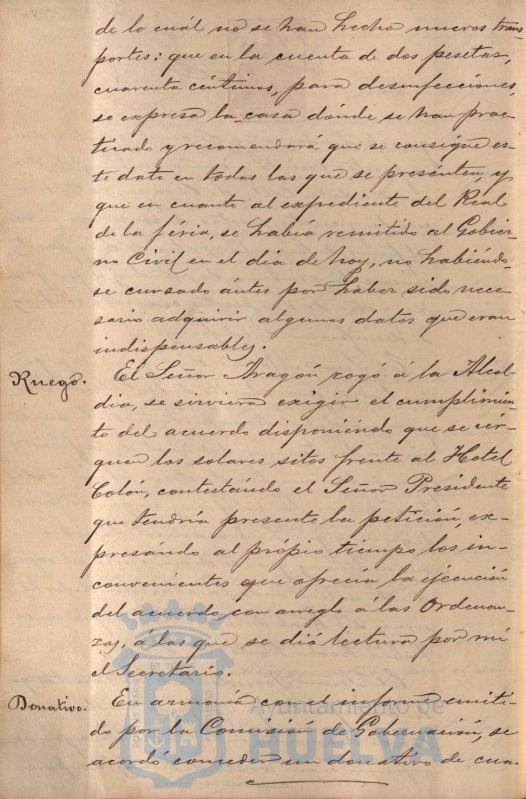 de lo cuál no se han hecho nuevos trans-
portes: que en la cuenta de dos pesetas,
cuarenta céntimos, para desinfecciones,
se expresa la casa dónde se han prac-
ticado y recomendará que se consigne es-
te dato en todas las que se presénten, y
que en cuanto al expediente del Real
de la féria, se había remitido al Gobier-
no Civil en el dia de hoy, no habiéndo-
se cursado ántes por haber sido nece-
sario adquirir algunos datos que eran
indispensables.
Ruego. El Señor Aragón rogó á la Alcal-
dia, se sirviera exigir el cumplimién-
to del acuerdo disponiéndo que se cér-
quen los solares sitos frente al Hotel
Colón, contestándo el Señor Presidente
que tendría presente la petición, ex-
presándo al própio tiempo los in-
convenientes que ofrecia la ejecución
del acuerdo, con arreglo á las Ordenan-
zas, á las que se dió lectura por mi
el Secretario.
Donativo. En armonía con el informe emiti-
do por la Comisión de Gobernación, se
acordó conceder un donativo de cua-
Ayuntamiento de
HUELVA